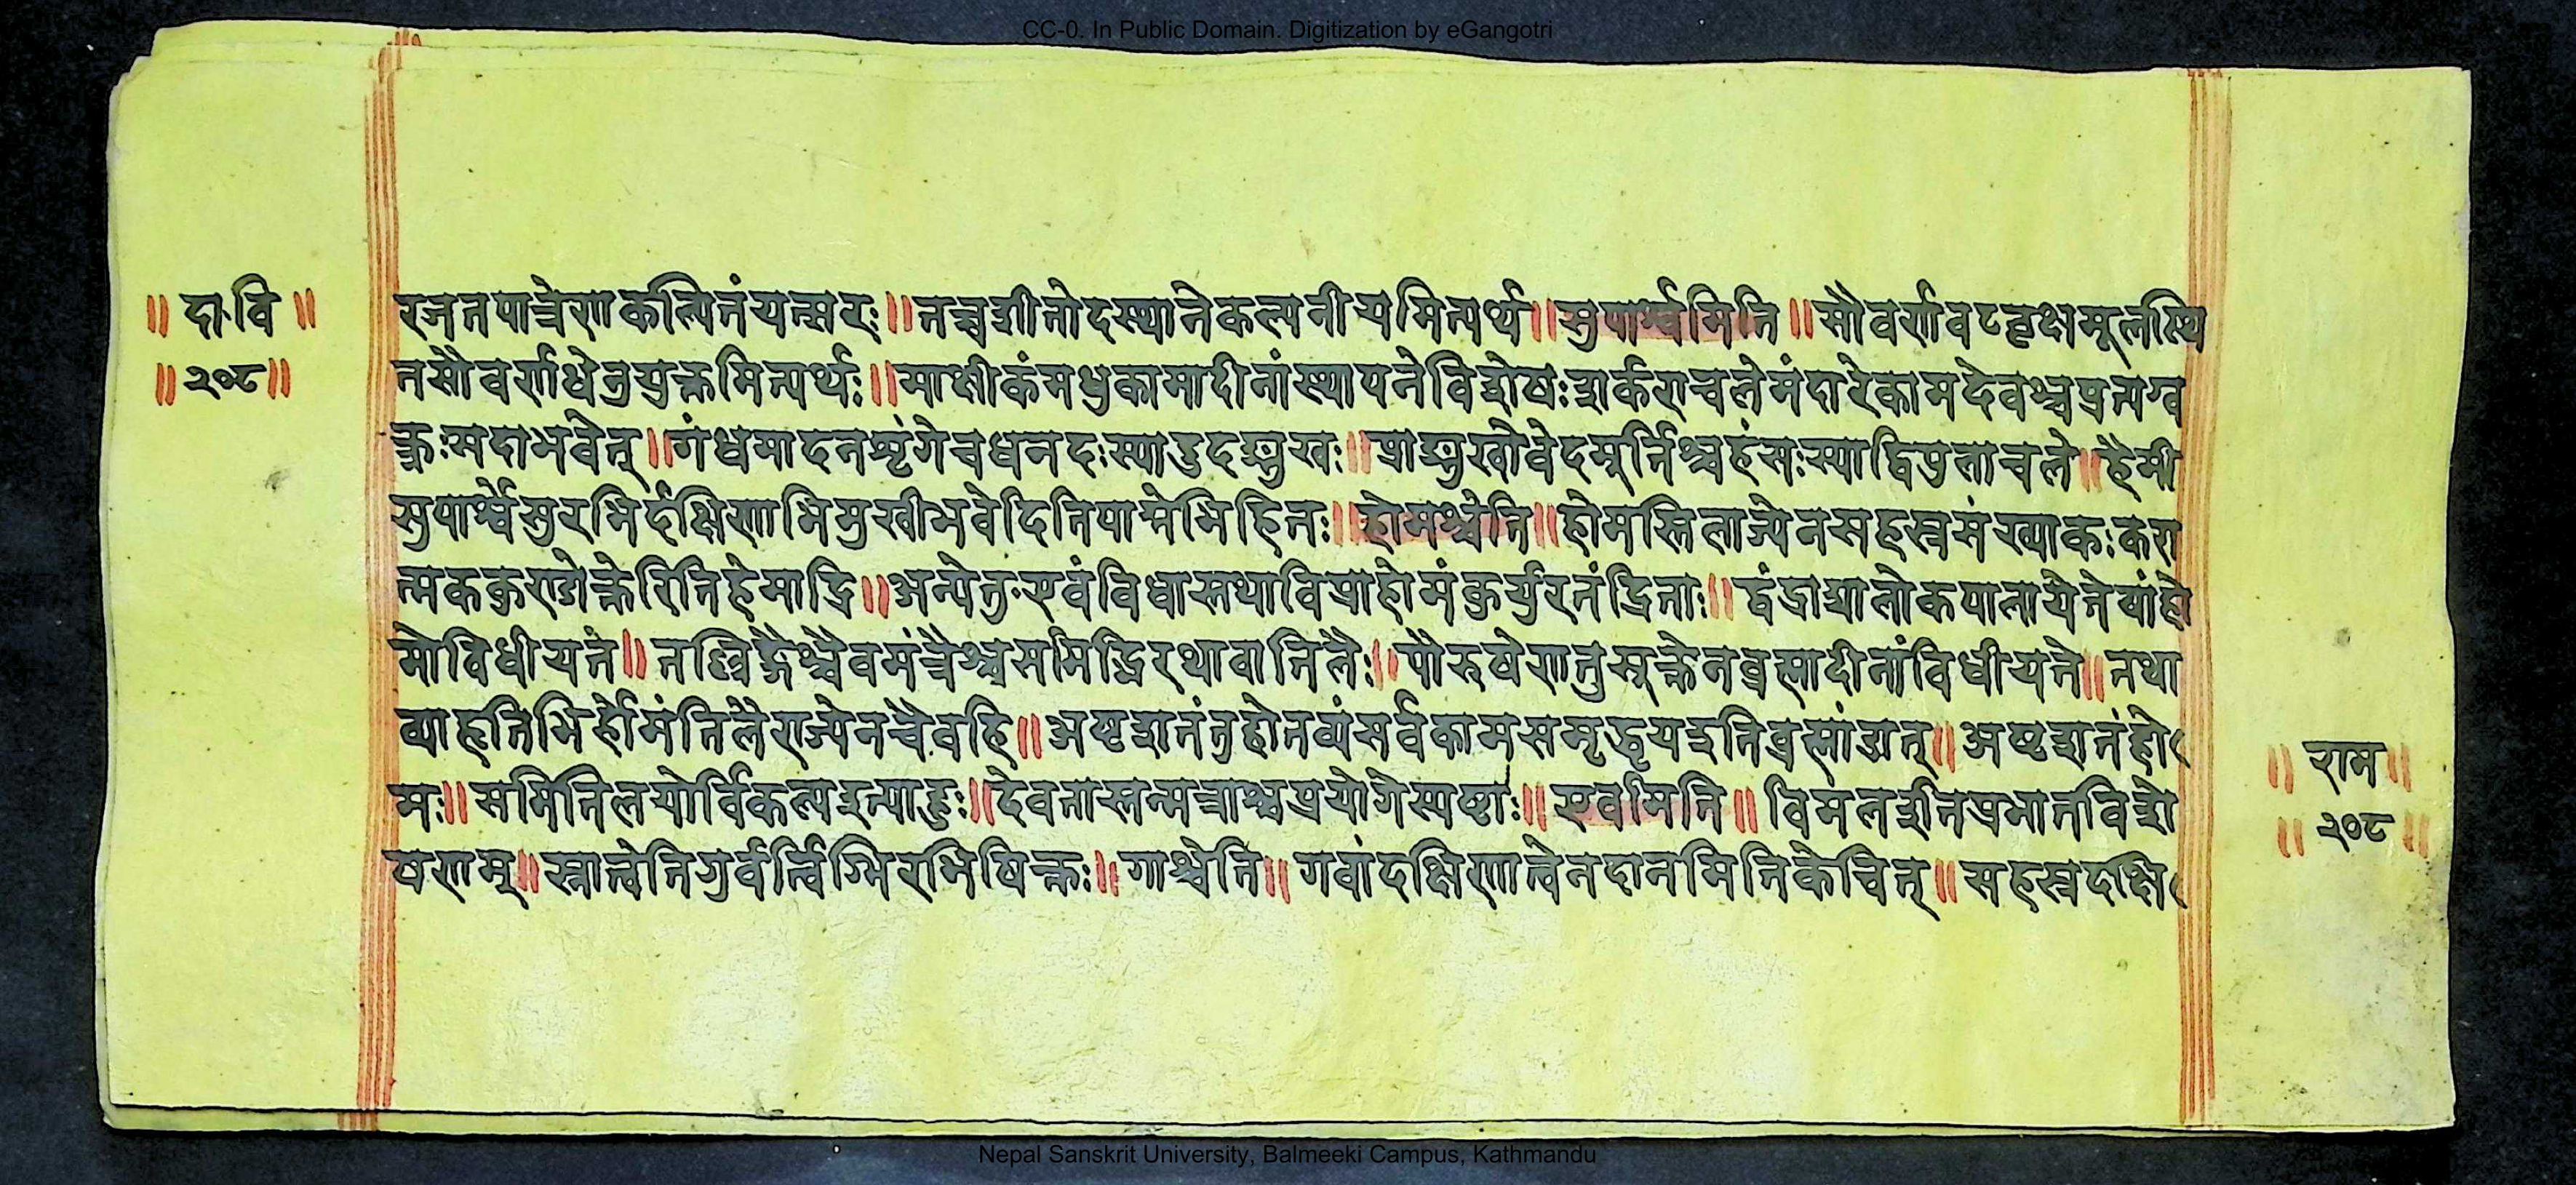 CC-0. In Public Domain. Digitization by eGangotri
॥ दा॰वि ॥
॥२०८॥
रजतपात्रेण कल्पितं यत्सरः ॥ तच्चशीतोदस्थाने कल्पनीयमित्यर्थ ॥ सुपार्श्वमिति ॥ सौवर्णवटवृक्षमूलस्थि
तसौवर्णधेनुयुक्तमित्यर्थः ॥ माक्षीकं मधु कामादीनां स्थापने विशेषः शर्कराचले मंदारे कामदेवश्च प्रत्यग्व
क्त्रः सदा भवेत् ॥ गंधमादनशृंगे च धनदः स्यादुदङ्मुखः ॥ प्राङ्मुखो वेदमूर्तिश्च हंसः स्याद्विपुलाचले ॥ हैमी
सुपार्श्वे सुरभिर्दक्षिणाभिमुखी भवेदिति पाद्मेभिहितः ॥ होमश्चेति ॥ होमस्तिलाज्येन सहस्रसंख्याकः करा
त्मककुण्डोक्तेरिति हेमाद्रि ॥ अन्येतु एवंविधास्तथा विप्रा होमं कुर्युरतंद्रिताः ॥ इंद्राद्या लोकपाला ये तेषां हो
मो विधीयतं ॥ तल्लिङ्गैश्चैव मंत्रैश्च समिद्भिरथवा तिलैः ॥ पौरुषेण तु सूक्तेन ब्रह्मादीनां विधीयते ॥ तथा
व्याहृतिभिर्होमं तिलैराज्येन चैव हि ॥ अष्टशतं तु होतव्यं सर्वकामसमृद्धय इति ब्रह्मांडात् ॥ अष्टशतं हो
मः ॥ समित्तिलयोर्विकल्प इत्याहुः ॥ देवतास्तन्मन्त्राश्च प्रयोगे स्पष्टाः ॥ एवमिति ॥ विमल इति प्रभातविशे
षणम् ॥ स्नात्वेति गुर्वर्त्विग्भिरभिषिक्तः ॥ गाश्चेति ॥ गवां दक्षिणात्वेन दानमिति केचित् ॥ सहस्रदक्षि
॥ राम ॥
॥ २०८ ॥
Nepal Sanskrit University, Balmeeki Campus, Kathmandu